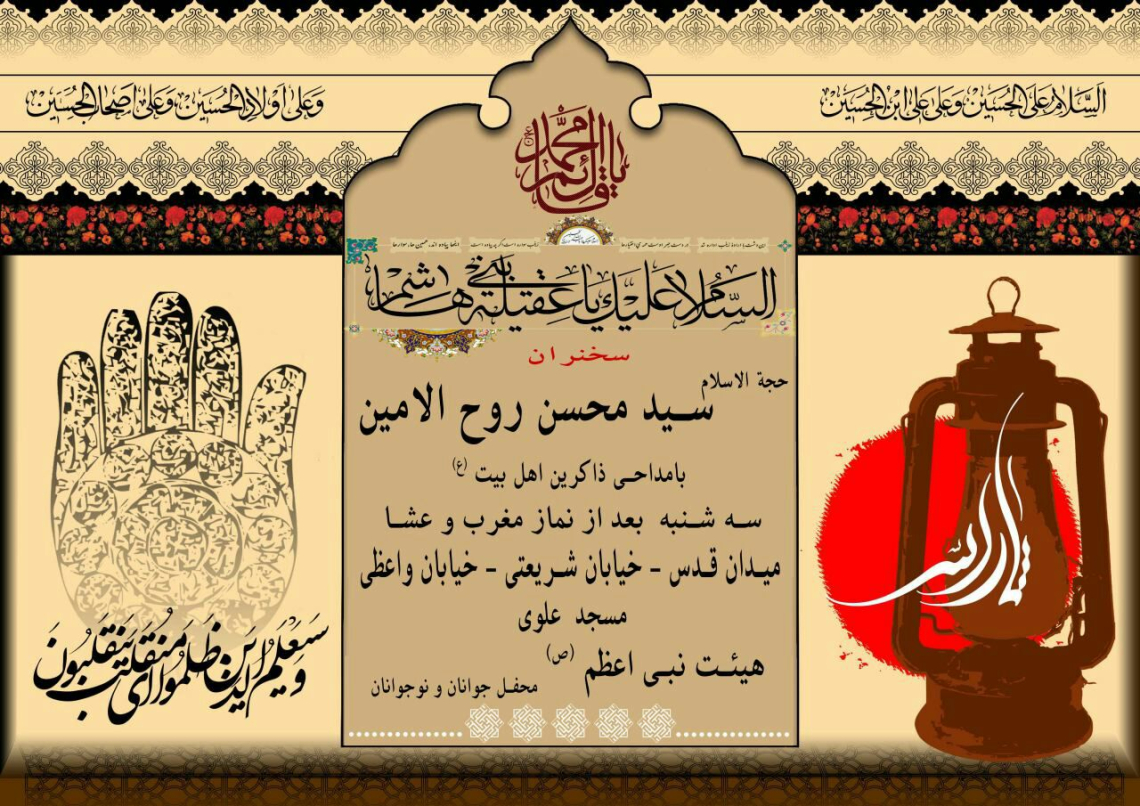 اَلسَّلامُ عَلَی الْحُسَیْنِ وَ عَلی عَلِیِّ ابْنِ الْحُسَیْنِ
وَ عَلی اَوْلادِ الْحُسَیْنِ وَ عَلی اَصْحابِ الْحُسَیْنِ
یا قائم آل محمد
السَّلامُ عَلَيْكِ يا عَقيلَةَ بَني هاشم
سخنران
حجة الاسلام
سید محسن روح الامین
بامداحی ذاکرین اهل بیت (ع)
سه شنبه بعد از نماز مغرب و عشا
میدان قدس - خیابان شریعتی - خیابان واعظی
مسجد علوی
هیئت نبی اعظم (ص)
محفل جوانان و نوجوانان
وَ سَيَعْلَمُ الَّذينَ ظَلَمُوا أَيَّ مُنقَلَبٍ يَنقَلِبُونَ